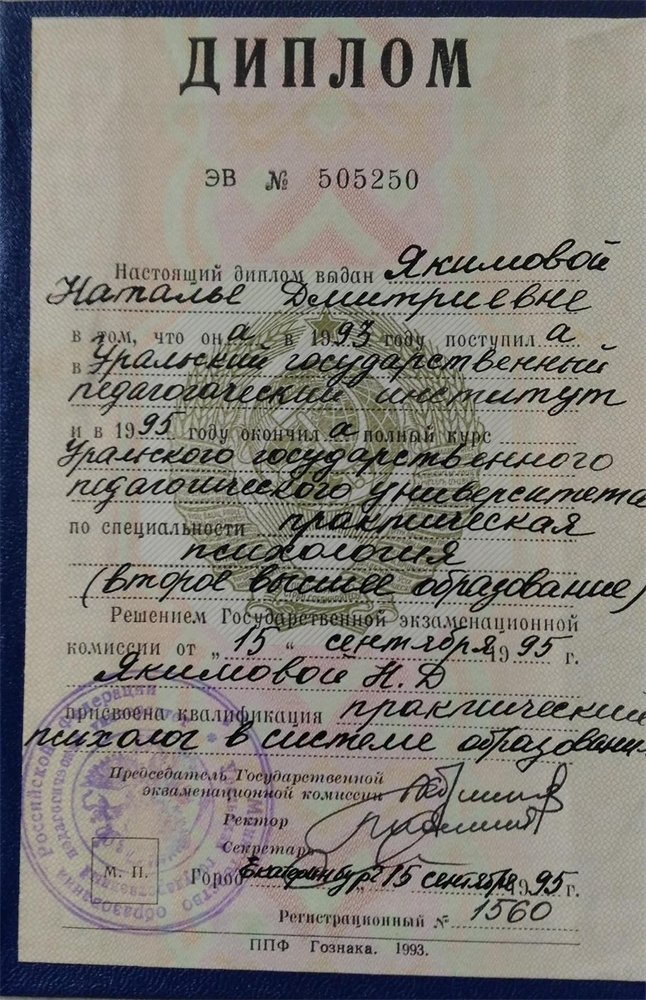 ДИПЛОМ
ЭВ № 505250
Настоящий диплом выдан Якимовой
Наталье Дмитриевне
в том, что она в 1993 году поступила
в Уральский государственный
педагогический институт
и в 1995 году окончила полный курс
Уральского государственного
педагогического университета
по специальности практическая
психология
(второе высшее образование)
Решением Государственной экзаменационной
комиссии от „15“ сентября 1995 г.
Якимовой Н.Д
присвоена квалификация практический
психолог в системе образовани
Председатель Государственной
экзаменационной комиссии
Ректор
Секретарь
М. П.
Город Екатеринбург 15 сентября 1995 г.
Регистрационный № 1560
ППФ Гознака. 1993.